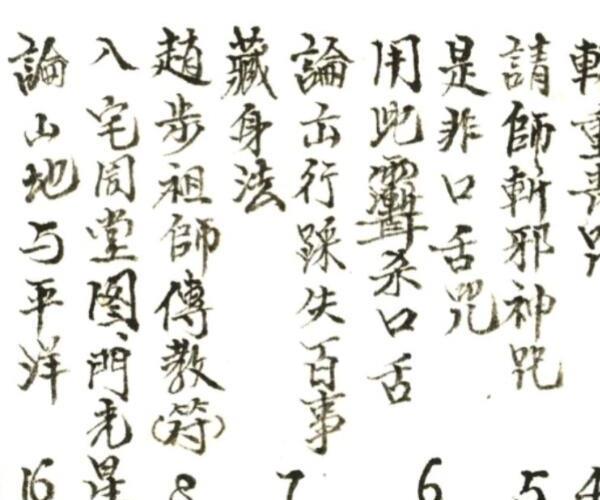 斬
請師斬邪神咒 5
是非口舌咒
用此 杀口舌 6
論 行踩失百事 7
藏身法
趙步祖師傳教(符) 8
八宅周堂图、門光星
論山地与平洋 16